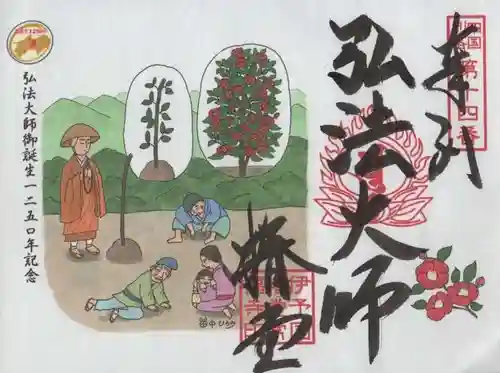 奉拝
四国
別格
第十四番
弘法大師
椿堂
伊予国
弘法大師御誕生一二五〇年記念
田中ひろみ